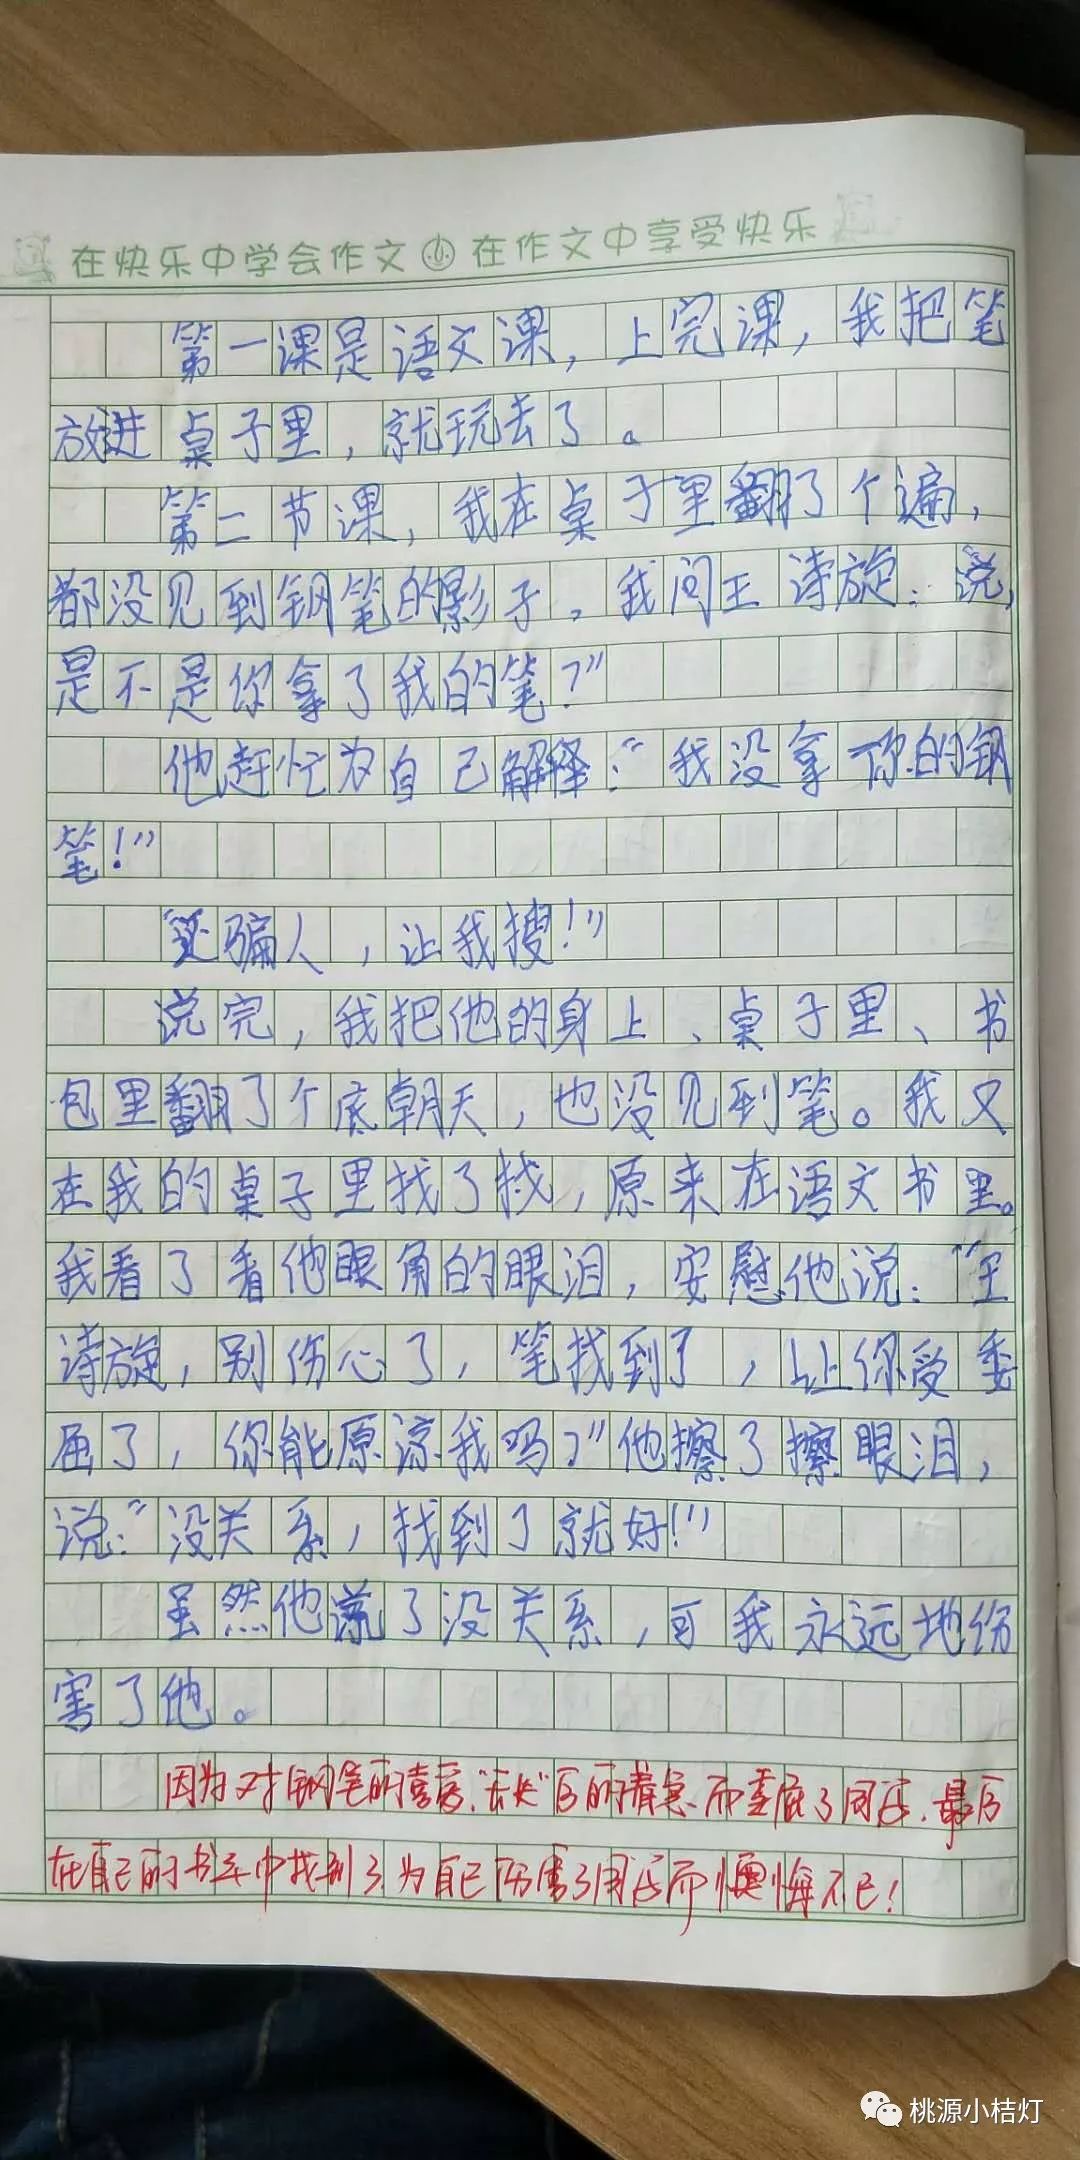 在快乐中学会作文 在作文中享受快乐
第一课是语文课，上完课，我把笔
放进桌子里，就玩去了。
第二节课，我在桌子里翻了个遍，
都没见到钢笔的影子。我问王诗旋：“说，
是不是你拿了我的笔？”
他赶忙为自己解释：“我没拿你的钢
笔！”
“还骗人，让我搜！”
说完，我把他的身上、桌子里、书
包里翻了个底朝天，也没见到笔。我又
在我的桌子里找了找，原来在语文书里。
我看了看他眼角的眼泪，安慰他说：“王
诗旋，别伤心了，笔找到了，让你受委
屈了，你能原谅我吗？”他擦了擦眼泪，
说：“没关系，找到了就好！”
虽然他说了没关系，可我永远地伤
害了他。
因为对钢笔的喜爱，“丢失”后的着急而委屈了同学，最后
在自己的书本中找到了，为自己伤害了同学而懊悔不已！
桃源小桔灯